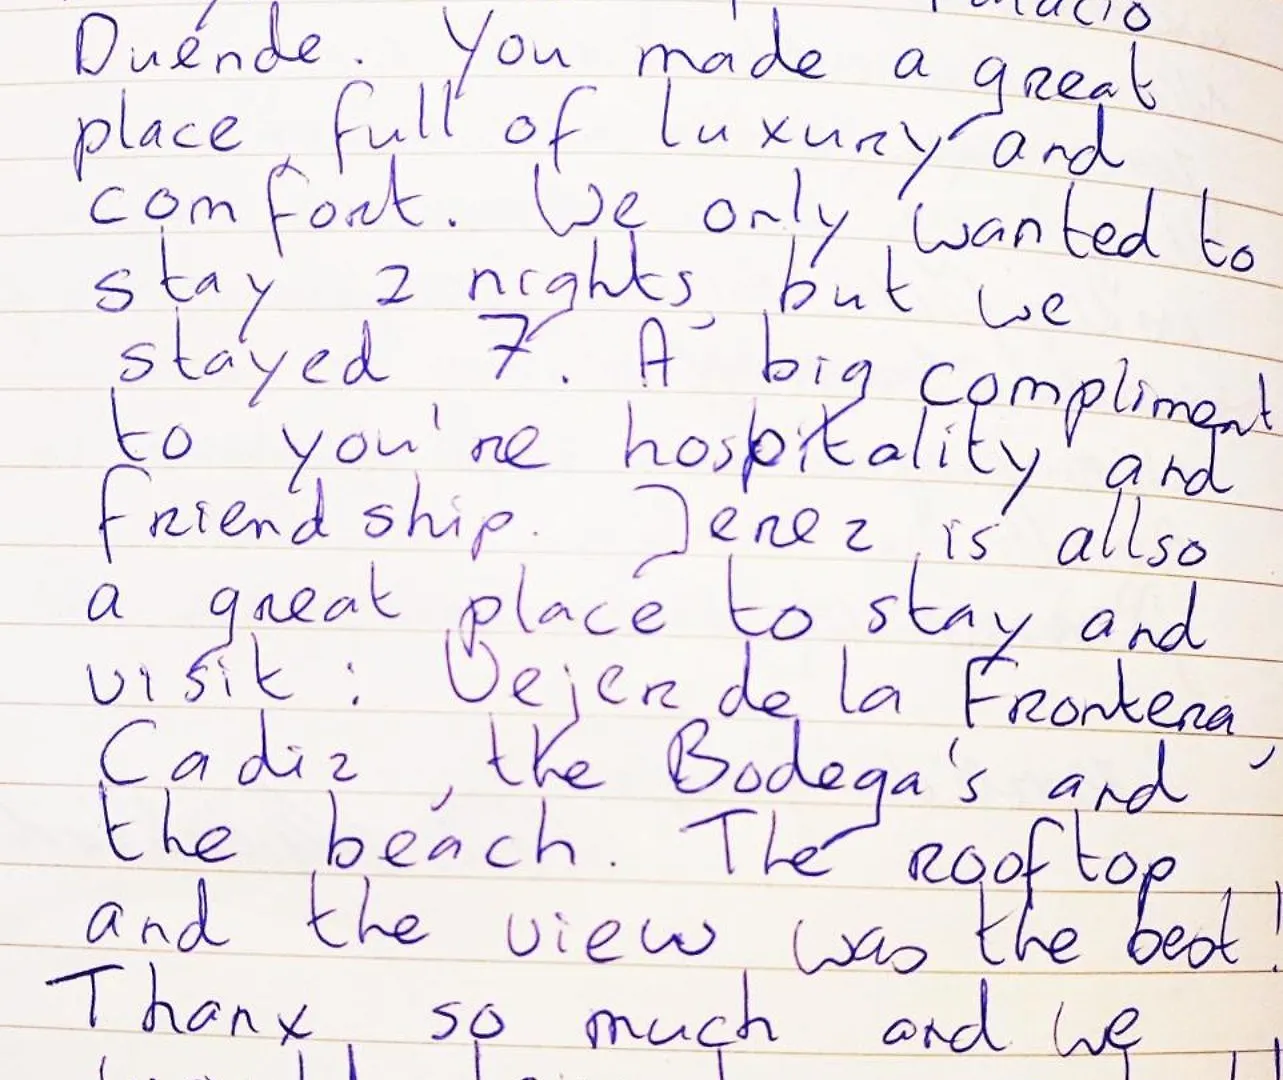 Palacio
Duende. You made a great
place, full of luxury and
comfort. We only wanted to
stay 2 nights, but we
stayed 7. A big compliment
to you're hospitality and
friendship. Jerez is allso
a great place to stay and
visit: Vejer de la Frontera,
Cadiz, the Bodega's and
the beach. The rooftop
and the view was the best!
Thanx so much and we